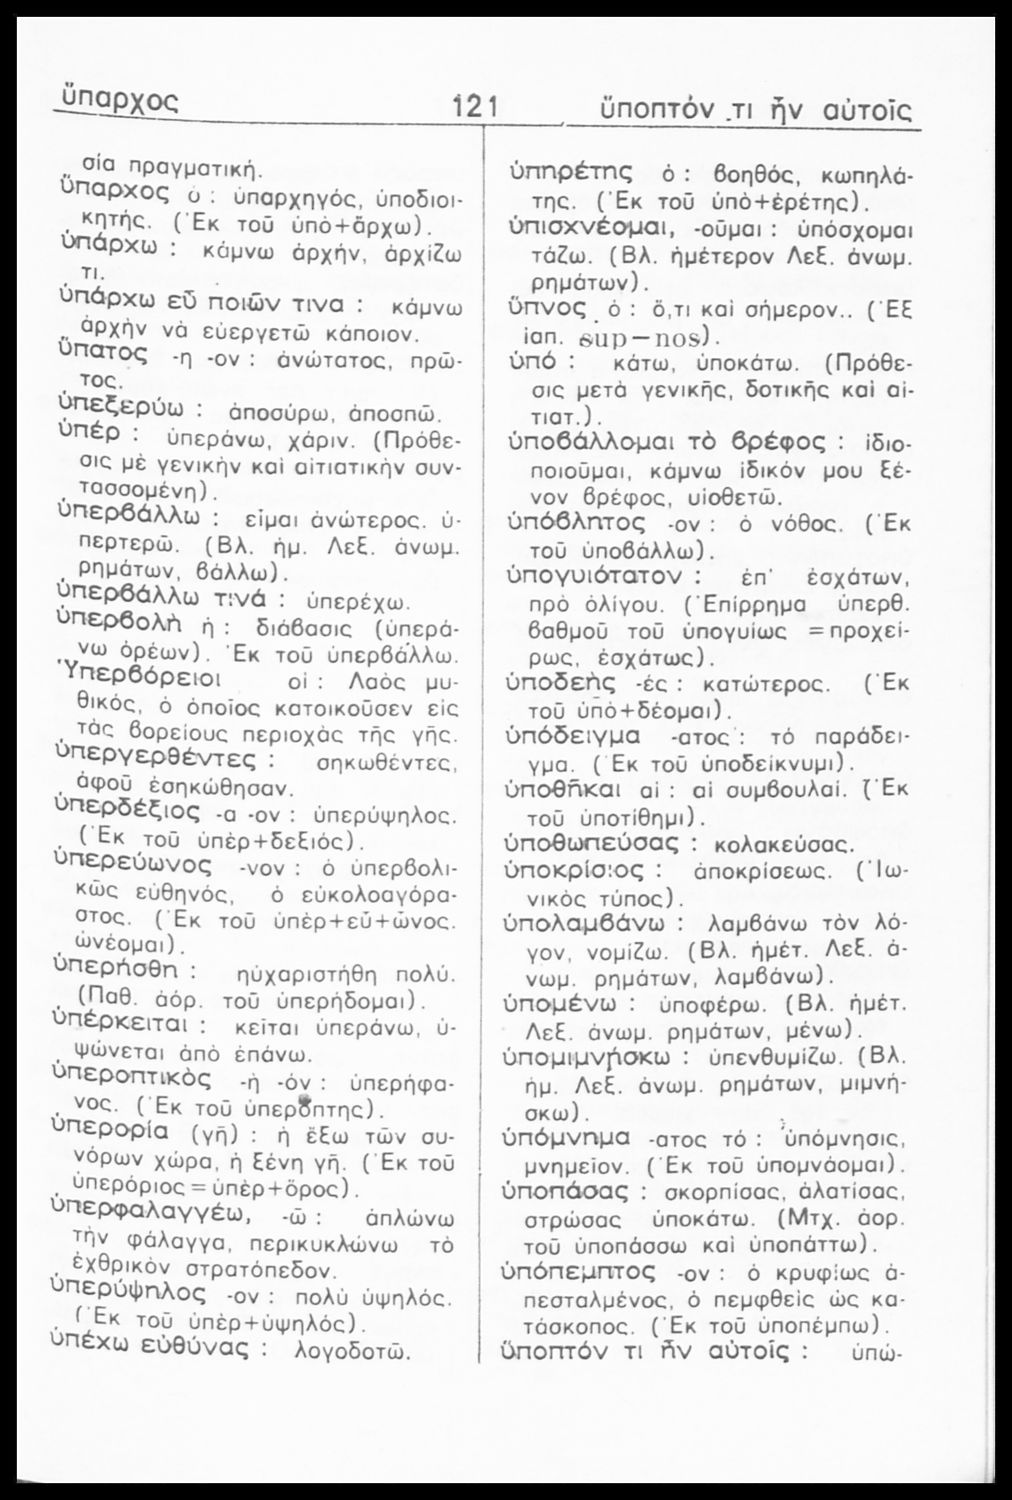 ὕπαρχος
121
ὕποπτόν τι ἦν αὐτοῖς
σία πραγματική.
ὕπαρχος ὁ : ὑπαρχηγός, ὑποδιοι-
κητής. (Ἐκ τοῦ ὑπὸ+ἄρχω).
ὑπάρχω : κάμνω ἀρχήν, ἀρχίζω
τι.
ὑπάρχω εὖ ποιῶν τινα : κάμνω
ἀρχὴν νὰ εὐεργετῶ κάποιον.
ὕπατος -η -ον : ἀνώτατος, πρῶ-
τος.
ὑπεξερύω : ἀποσύρω, ἀποσπῶ.
ὑπέρ : ὑπεράνω, χάριν. (Πρόθε-
σις μὲ γενικὴν καὶ αἰτιατικὴν συν-
τασσομένη).
ὑπερβάλλω : εἶμαι ἀνώτερος. ὑ-
περτερῶ. (Βλ. ἡμ. Λεξ. ἀνωμ.
ρημάτων, βάλλω).
ὑπερβάλλω τινά : ὑπερέχω.
ὑπερβολὴ ἡ : διάβασις (ὑπερά-
νω ὀρέων). Ἐκ τοῦ ὑπερβάλλω.
Ὑπερβόρειοι οἱ : Λαὸς μυ-
θικός, ὁ ὁποῖος κατοικοῦσεν εἰς
τὰς βορείους περιοχὰς τῆς γῆς.
ὑπεργερθέντες : σηκωθέντες,
ἀφοῦ ἐσηκώθησαν.
ὑπερδέξιος -α -ον : ὑπερύψηλος.
(Ἐκ τοῦ ὑπὲρ+δεξιός).
ὑπερεύωνος -νον : ὁ ὑπερβολι-
κῶς εὐθηνός, ὁ εὐκολοαγόρα-
στος. (Ἐκ τοῦ ὑπὲρ+εὖ+ὦνος.
ὠνέομαι).
ὑπερήσθη : ηὐχαριστήθη πολύ.
(Παθ. ἀόρ. τοῦ ὑπερήδομαι).
ὑπέρκειται : κεῖται ὑπεράνω, ὑ-
ψώνεται ἀπὸ ἐπάνω.
ὑπεροπτικὸς -ὴ -όν : ὑπερήφα-
νος. (Ἐκ τοῦ ὑπερόπτης).
ὑπερορία (γῆ) : ἡ ἔξω τῶν συ-
νόρων χώρα, ἡ ξένη γῆ. (Ἐκ τοῦ
ὑπερόριος = ὑπὲρ+ὅρος).
ὑπερφαλαγγέω, -ῶ : ἁπλώνω
τὴν φάλαγγα, περικυκλώνω τὸ
ἐχθρικὸν στρατόπεδον.
ὑπερύψηλος -ον : πολὺ ὑψηλός.
(Ἐκ τοῦ ὑπὲρ+ὑψηλός).
ὑπέχω εὐθύνας : λογοδοτῶ.
ὑπηρέτης ὁ : βοηθός, κωπηλά-
της. (Ἐκ τοῦ ὑπὸ+ἐρέτης).
ὑπισχνέομαι, -οῦμαι : ὑπόσχομαι
τάζω. (Βλ. ἡμέτερον Λεξ. ἀνωμ.
ρημάτων).
ὕπνος ὁ : ὅ,τι καὶ σήμερον.. (Ἐξ
ἰαπ. sup—nos).
ὑπό : κάτω, ὑποκάτω. (Πρόθε-
σις μετὰ γενικῆς, δοτικῆς καὶ αἰ-
τιατ.).
ὑποβάλλομαι τὸ βρέφος : ἰδιο-
ποιοῦμαι, κάμνω ἰδικόν μου ξέ-
νον βρέφος, υἱοθετῶ.
ὑπόβλητος -ον : ὁ νόθος. (Ἐκ
τοῦ ὑποβάλλω).
ὑπογυιότατον : ἐπ' ἐσχάτων,
πρὸ ὀλίγου. (Ἐπίρρημα ὑπερθ.
βαθμοῦ τοῦ ὑπογυίως = προχεί-
ρως, ἐσχάτως).
ὑποδεὴς -ές : κατώτερος. (Ἐκ
τοῦ ὑπὸ+δέομαι).
ὑπόδειγμα -ατος : τό παράδει-
γμα. (Ἐκ τοῦ ὑποδείκνυμι).
ὑποθῆκαι αἱ : αἱ συμβουλαί. (Ἐκ
τοῦ ὑποτίθημι).
ὑποθωπεύσας : κολακεύσας.
ὑποκρίσιος : ἀποκρίσεως. (Ἰω-
νικὸς τύπος).
ὑπολαμβάνω : λαμβάνω τὸν λό-
γον, νομίζω. (Βλ. ἡμέτ. Λεξ. ἀ-
νωμ. ρημάτων, λαμβάνω).
ὑπομένω : ὑποφέρω. (Βλ. ἡμέτ.
Λεξ. ἀνωμ. ρημάτων, μένω).
ὑπομιμνήσκω : ὑπενθυμίζω. (Βλ.
ἡμ. Λεξ. ἀνωμ. ρημάτων, μιμνή-
σκω).
ὑπόμνημα -ατος τό : ὑπόμνησις,
μνημεῖον. (Ἐκ τοῦ ὑπομνάομαι).
ὑποπάσας : σκορπίσας, ἀλατίσας,
στρώσας ὑποκάτω. (Μτχ. ἀορ.
τοῦ ὑποπάσσω καὶ ὑποπάττω).
ὑπόπεμπτος -ον : ὁ κρυφίως ἀ-
πεσταλμένος, ὁ πεμφθεὶς ὡς κα-
τάσκοπος. (Ἐκ τοῦ ὑποπέμπω).
ὕποπτόν τι ἦν αὐτοῖς : ὑπώ-